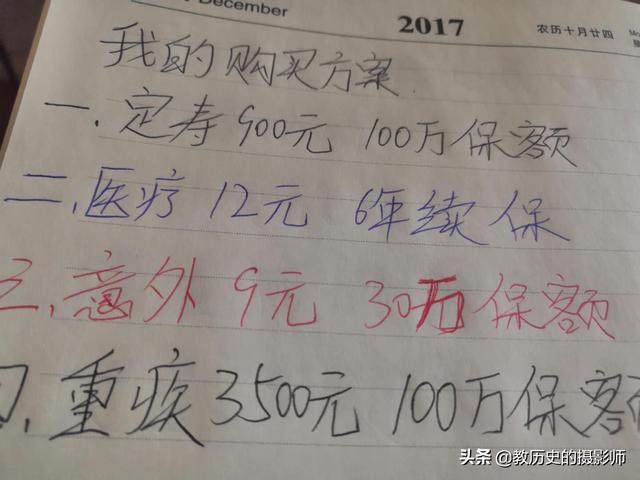 December
2017
农历十月廿四
我的购买方案
一.定寿 900元 100万保额
二.医疗 12元 6年续保
三.意外 9元 30万保额
四.重疾 3500元 100万保额
头条 @教历史的摄影师